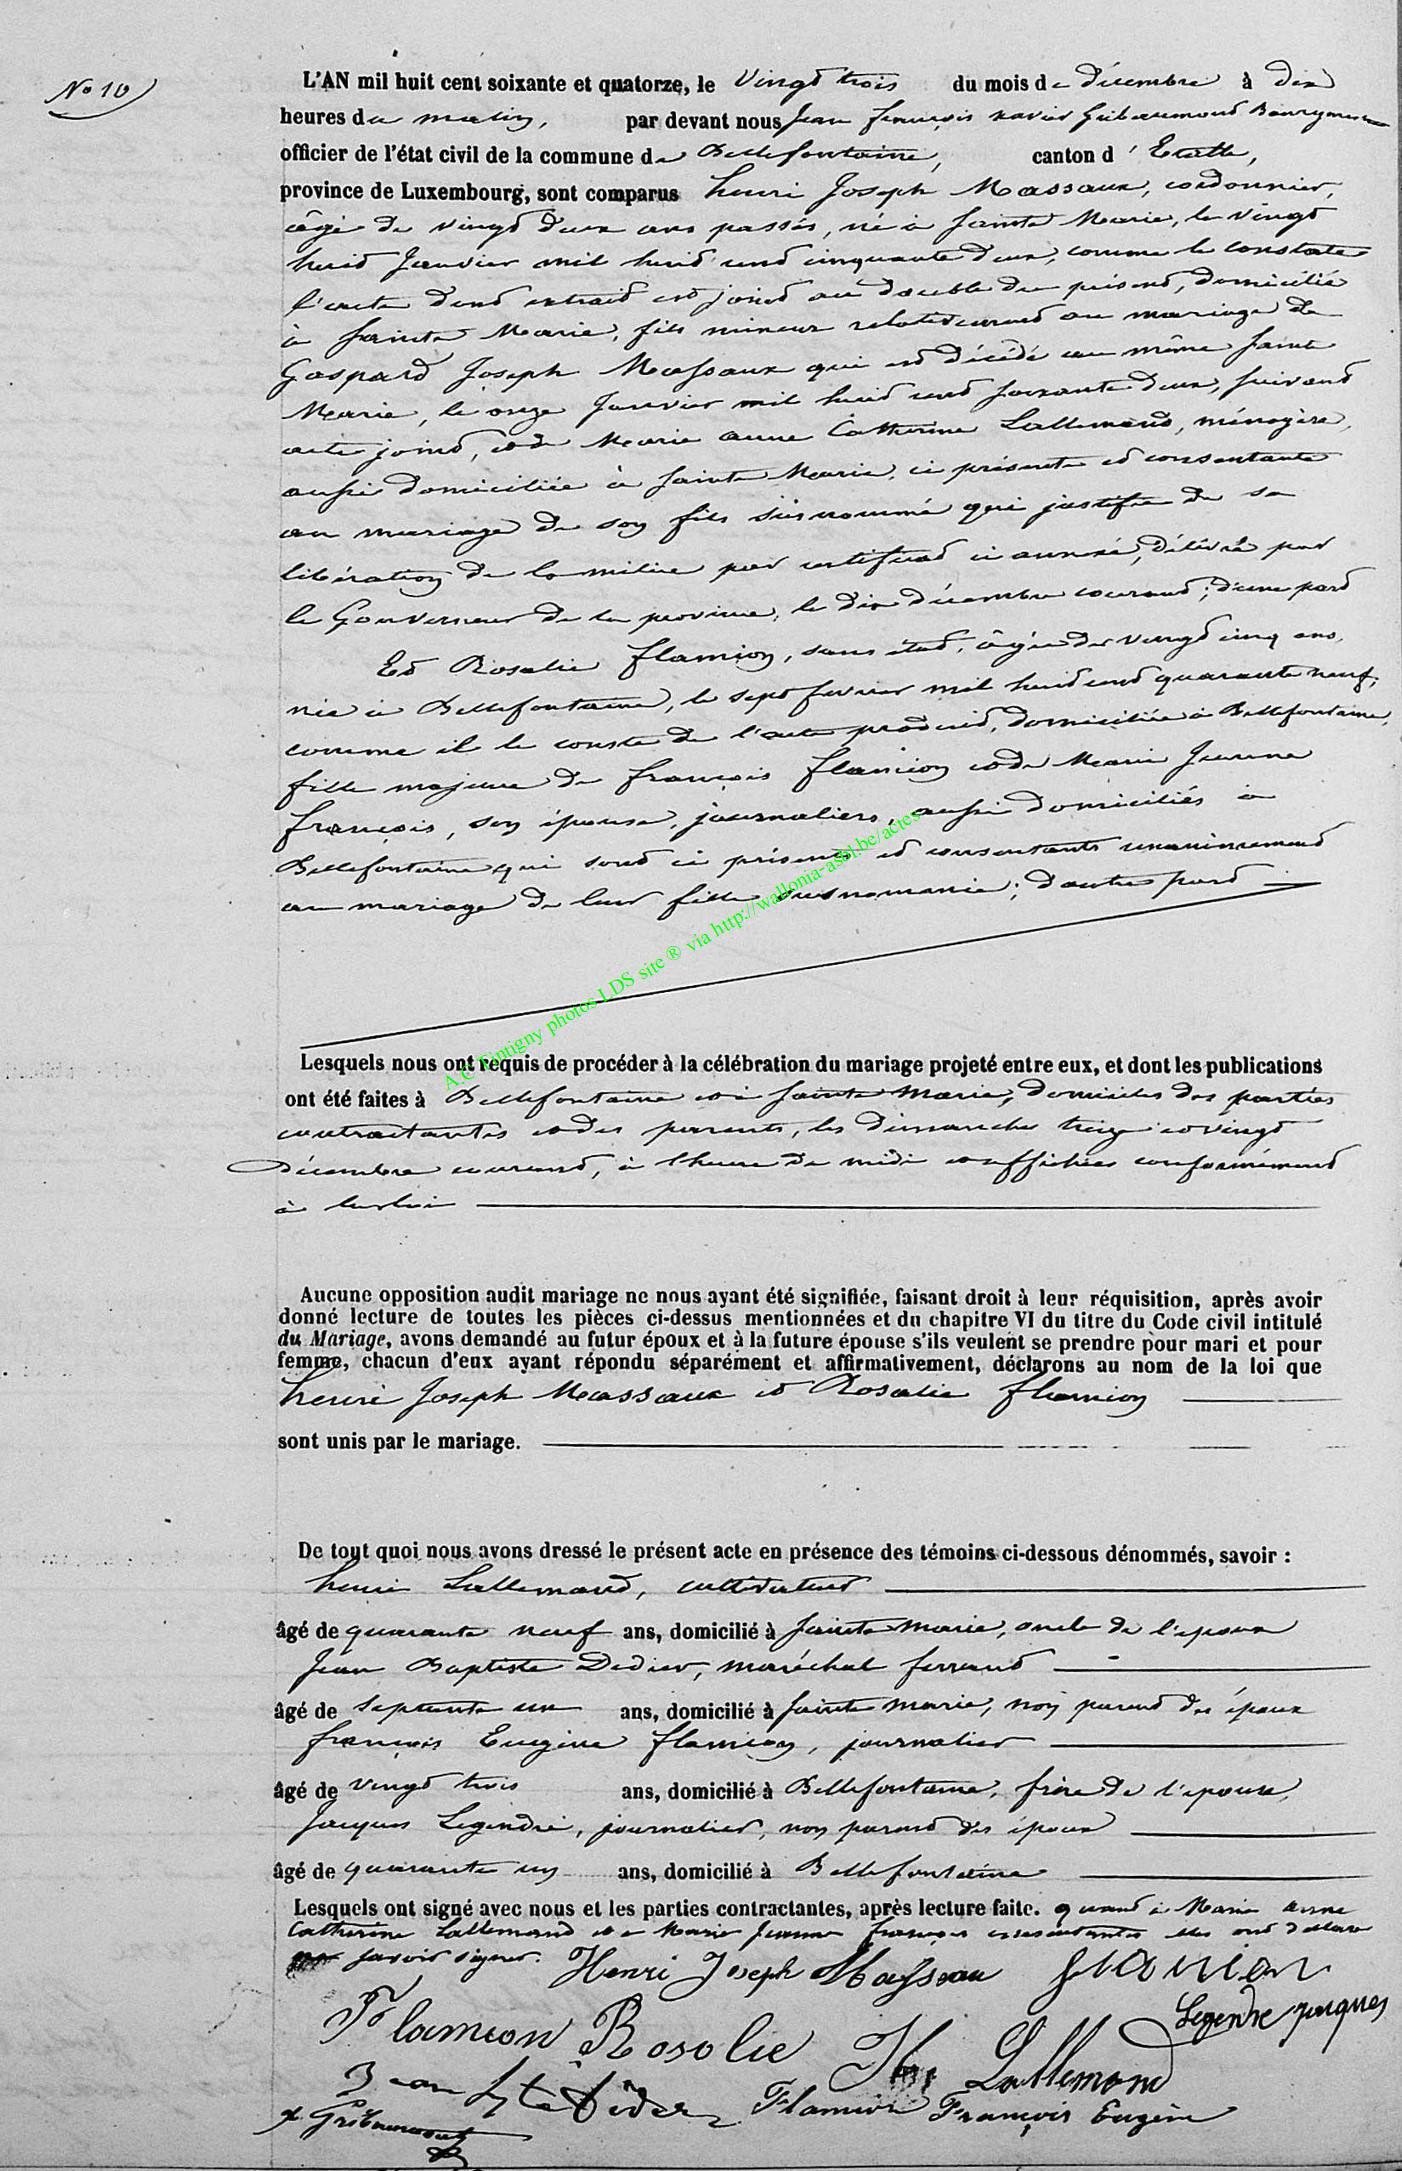 No 10
L'AN mil huit cent soixante et quatorze, le vingt trois du mois de décembre à dix
heures du matin, par devant nous Jean françois xavier Gribaumont Bourgmestre
officier de l'état civil de la commune de Bellefontaine, canton d'Etalle,
province de Luxembourg, sont comparus henri Joseph Massaux, cordonnier,
âgé de vingt deux ans passés, né à Sainte Marie, le vingt
huit Janvier mil huit cent cinquante deux, comme le constate
l'acte dont extrait est joint au double du présent, domicilié
à Sainte Marie, fils mineur relativement au mariage de
Gaspard Joseph Massaux qui est décédé au même Sainte
Marie, le onze Janvier mil huit cent soixante deux, suivant
acte joint, et de Marie anne Catherine Lallemand, ménagère,
aussi domiciliée à Sainte Marie, ci présente et consentante
au mariage de son fils susnommé qui justifie de sa
libération de la milice par certificat ci annexé, délivré par
le Gouverneur de la province, le dix décembre courant; d'une part
Et Rosalie flamion, sans état, âgée de vingt cinq ans,
née à Bellefontaine, le sept fevrier mil huit cent quarante neuf,
comme il le conste de l'acte produit, domiciliée à Bellefontaine,
fille majeure de françois flamion et de Marie Jeanne
françois, son épouse, journaliers, aussi domiciliés à
Bellefontaine qui sont ci présents et consentants unanimement
au mariage de leur fille susnommée; d'autre part
A.C Tintigny photos LDS site ® via http://wallonia-asbl.be/actes
Lesquels nous ont requis de procéder à la célébration du mariage projeté entre eux, et dont les publications
ont été faites à Bellefontaine et à Sainte Marie, domiciles des parties
contractantes et des parents, les dimanches treize et vingt
décembre courant, à l'heure de midi et affichées conformément
à la loi
Aucune opposition audit mariage ne nous ayant été signifiée, faisant droit à leur réquisition, après avoir
donné lecture de toutes les pièces ci-dessus mentionnées et du chapitre VI du titre du Code civil intitulé
du Mariage, avons demandé au futur époux et à la future épouse s'ils veulent se prendre pour mari et pour
femme, chacun d'eux ayant répondu séparément et affirmativement, déclarons au nom de la loi que
henri Joseph Massaux et Rosalie flamion
sont unis par le mariage.
De tout quoi nous avons dressé le présent acte en présence des témoins ci-dessous dénommés, savoir :
henri Lallemand, cultivateur
âgé de quarante neuf ans, domicilié à Sainte Marie, oncle de l'epoux
Jean Baptiste Didier, maréchal ferrant
âgé de septante un ans, domicilié à Sainte Marie, non parent des époux
françois Eugène flamion, journalier
âgé de vingt trois ans, domicilié à Bellefontaine, frère de l'epouse,
Jacques Legendre, journalier, non parent des époux
âgé de quarante un ans, domicilié à Bellefontaine
Lesquels ont signé avec nous et les parties contractantes, après lecture faite. quant à Marie anne
Catherine Lallemand et à Marie Jeanne françois consentantes elles ont déclaré
savoir signer. Henri Joseph Massau flamion
Legendre jacques
Flamion Rosolie Hri Lallemand
Jean Bte Didier Flamion François Eugène
x Gribaumont